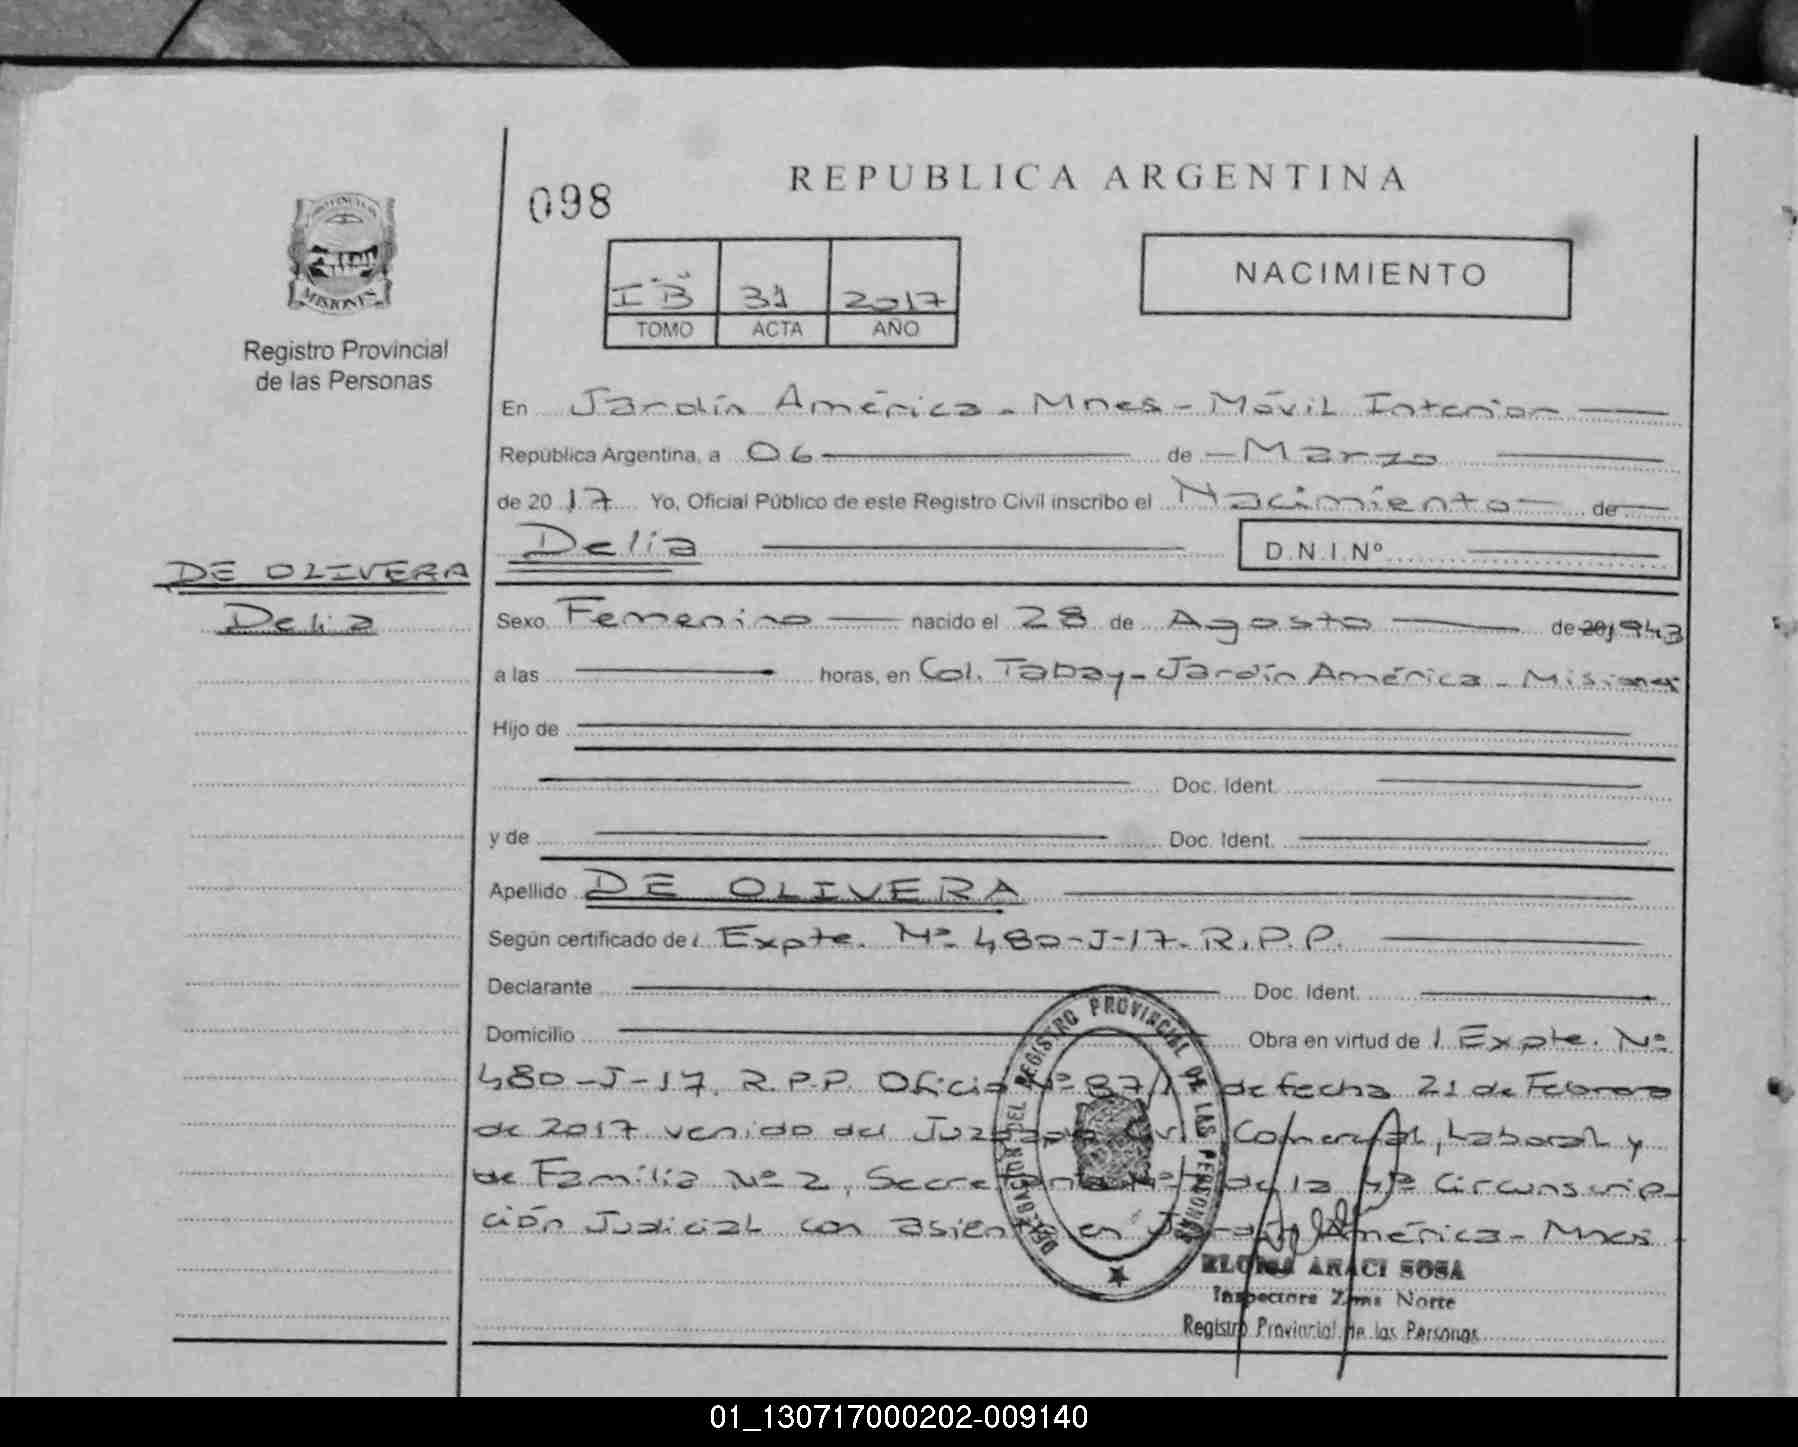 REPUBLICA ARGENTINA
098
NACIMIENTO
I "B" 31 2017
TOMO ACTA AÑO
MISIONES
Registro Provincial
de las Personas
En Jardín América - Mnes - Móvil Interior
República Argentina, a 06 de Marzo
de 2017 Yo, Oficial Público de este Registro Civil inscribo el Nacimiento de
Delia D.N.I.Nº
DE OLIVERA
Delia
Sexo Femenino nacido el 28 de Agosto de 20 1943
a las horas, en Col. Tabay - Jardín América - Misiones
Hijo de
Doc. Ident.
y de Doc. Ident.
Apellido DE OLIVERA
Según certificado de / Expte. Nº 480-J-17. R.P.P.
Declarante Doc. Ident.
Domicilio Obra en virtud de / Expte. Nº
480-J-17. R.P.P. Oficio Nº 87/ de fecha 21 de Febrero
de 2017 venido del Juzgado Civil Comercial, Laboral y
de Familia Nº 2, Secretaría Nº de la 4ª Circunscrip-
ción Judicial con asiento en Jardín América - Mnes
DELEGACION DEL REGISTRO PROVINCIAL DE LAS PERSONAS
ELOISA ARACI SOSA
Inspectora Zona Norte
Registro Provincial de las Personas
01_130717000202-009140